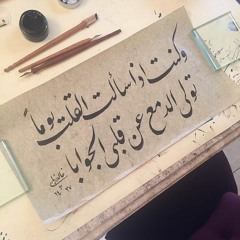 وكنت إذا سألت القلب يوماً
تولى الدمع عن قلبي الجوابا